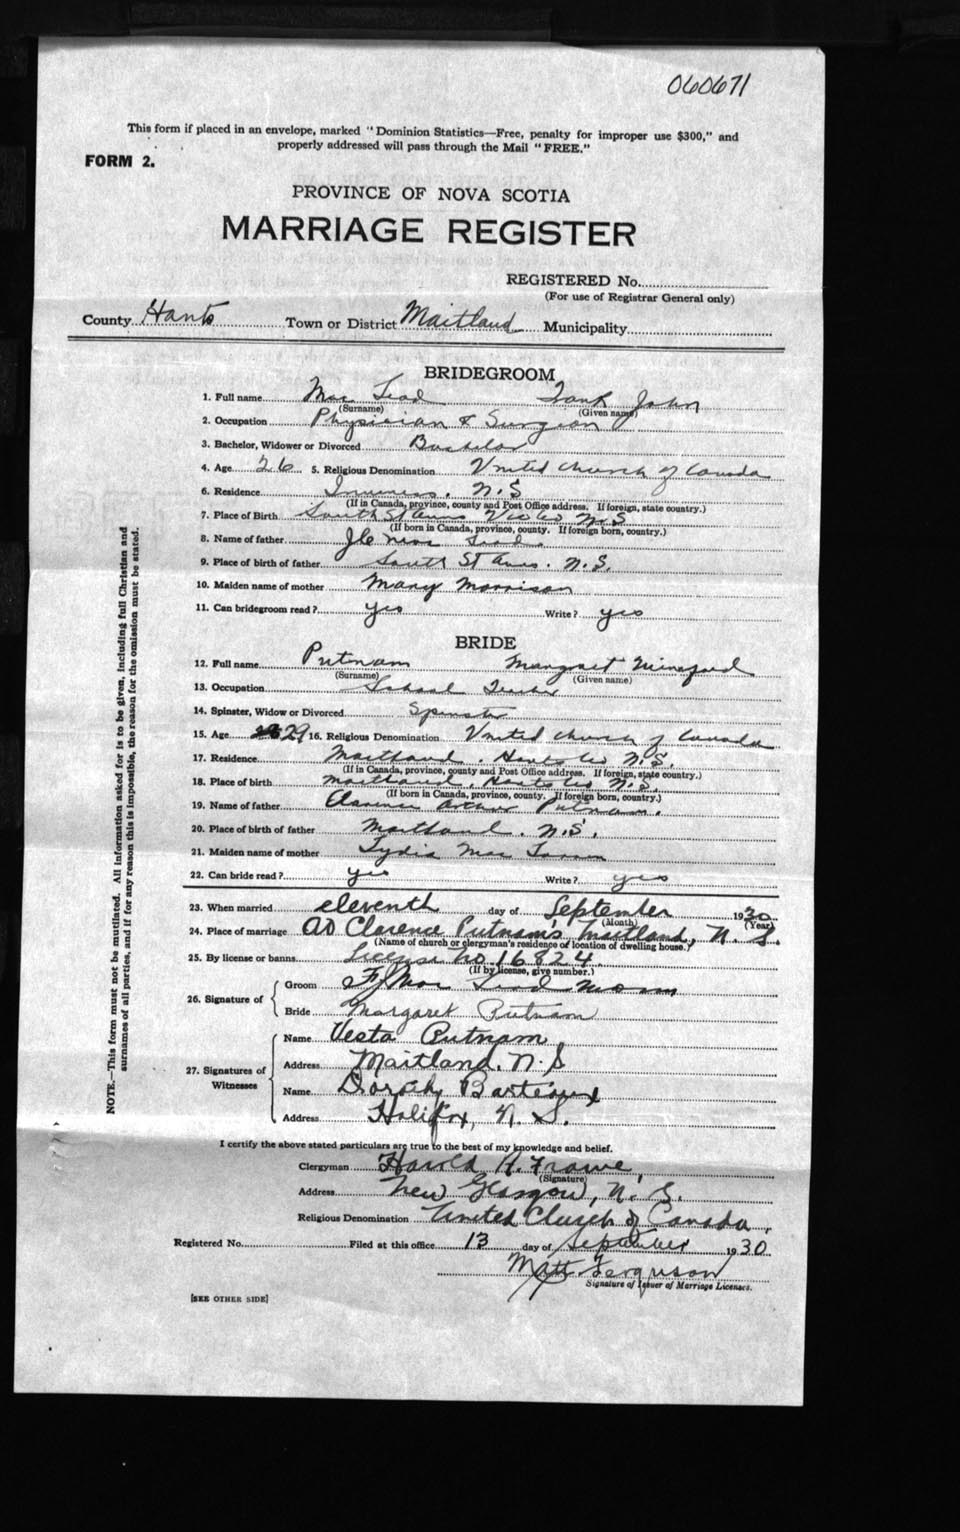 060671
This form if placed in an envelope, marked "Dominion Statistics—Free, penalty for improper use $300," and
properly addressed will pass through the Mail "FREE."
FORM 2.
PROVINCE OF NOVA SCOTIA
MARRIAGE REGISTER
REGISTERED No.
(For use of Registrar General only)
County Hants Town or District Maitland Municipality
BRIDEGROOM
1. Full name Mac Leod Frank John
(Surname) (Given name)
2. Occupation Physician & Surgeon
3. Bachelor, Widower or Divorced Bachelor
4. Age 26 5. Religious Denomination United Church of Canada
6. Residence Inverness. N.S
(If in Canada, province, county and Post Office address. If foreign, state country.)
7. Place of Birth South St Anns N.S
(If born in Canada, province, county. If foreign born, country.)
8. Name of father Mac Leod
9. Place of birth of father South St Anns. N.S.
10. Maiden name of mother Mary Morrison
11. Can bridegroom read? yes Write? yes
BRIDE
12. Full name Putnam Margaret
(Surname) (Given name)
13. Occupation School Teacher
14. Spinster, Widow or Divorced Spinster
15. Age 29 16. Religious Denomination United Church of Canada
17. Residence Maitland. Hants Co N.S.
(If in Canada, province, county and Post Office address. If foreign, state country.)
18. Place of birth Maitland. Hants Co N.S.
(If born in Canada, province, county. If foreign born, country.)
19. Name of father Clarence Arthur Putnam.
20. Place of birth of father Maitland. N.S.
21. Maiden name of mother Lydia Mac
22. Can bride read? yes Write? yes
23. When married eleventh day of September 1930
(Month) (Year)
24. Place of marriage Clarence Putnam's Maitland, N.S.
(Name of church or clergyman's residence or location of dwelling house.)
25. By license or banns License No 16824.
(If by license, give number.)
26. Signature of
Groom F J Mac Leod
Bride Margaret Putnam
27. Signatures of Witnesses
Name Vesta Putnam
Address Maitland. N.S
Name Dorothy Barteaux
Address Halifax, N.S.
I certify the above stated particulars are true to the best of my knowledge and belief.
Clergyman Harold A. Frame
(Signature)
Address New Glasgow, N.S.
Religious Denomination United Church of Canada.
Registered No. Filed at this office 13 day of September 1930
Matt Ferguson
Signature of Issuer of Marriage Licenses.
[SEE OTHER SIDE]
NOTE.—This form must not be mutilated. All information asked for is to be given, including full Christian and
surnames of all parties, and if for any reason this is impossible, the reason for the omission must be stated.